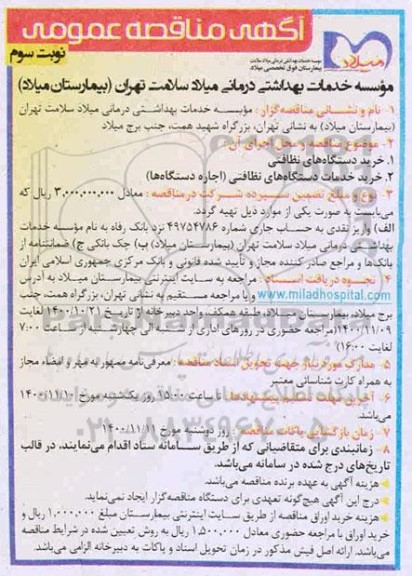 آگهی مناقصه عمومی
نوبت سوم
میلاد
موسسه خدمات بهداشتی درمانی میلاد سلامت
بیمارستان فوق تخصصی میلاد
مؤسسه خدمات بهداشتی درمانی میلاد سلامت تهران (بیمارستان میلاد)
۱- نام و نشانی مناقصه‌گزار: مؤسسه خدمات بهداشتی درمانی میلاد سلامت تهران
(بیمارستان میلاد) به نشانی تهران، بزرگراه شهید همت، جنب برج میلاد
۲- موضوع مناقصه و محل اجرای آن:
۱. خرید دستگاه‌های نظافتی
۲. خرید خدمات دستگاه‌های نظافتی (اجاره دستگاه‌ها)
۳- نوع و مبلغ تضمین سپرده شرکت در مناقصه: معادل ۳,۰۰۰,۰۰۰,۰۰۰ ریال که
می‌بایست به صورت یکی از موارد ذیل تهیه گردد.
الف) واریز نقدی به حساب جاری شماره ۴۹۷۵۴۷۸۶ نزد بانک رفاه به نام مؤسسه خدمات
بهداشتی درمانی میلاد سلامت تهران (بیمارستان میلاد) ب) چک بانکی ج) ضمانتنامه از
بانک‌ها و مراجع صادر کننده مجاز و تأیید شده قانونی و بانک مرکزی جمهوری اسلامی ایران
۴- نحوه دریافت اسناد: مراجعه به سایت اینترنتی بیمارستان میلاد به آدرس
www.miladhospital.com و یا مراجعه مستقیم به نشانی تهران، بزرگراه همت، جنب
برج میلاد، بیمارستان میلاد، طبقه همکف، واحد دبیرخانه از تاریخ ۱۴۰۰/۱۰/۲۱ لغایت
۱۴۰۰/۱۱/۰۹ (مراجعه حضوری در روزهای اداری از شنبه الی چهارشنبه از ساعت ۷:۰۰
لغایت ۱۶:۰۰)
۵- مدارک مورد نیاز جهت تحویل اسناد مناقصه: معرفی‌نامه ممهور به مهر و امضاء مجاز
به همراه کارت شناسائی معتبر
۶- آخرین مهلت تحویل پیشنهادها: تا ساعت ۱۵:۰۰ روز یکشنبه مورخ ۱۴۰۰/۱۱/۱۰
می‌باشد.
۷- زمان بازگشایی پاکات مناقصه: روز دوشنبه مورخ ۱۴۰۰/۱۱/۱۱
۸- زمانبندی برای متقاضیانی که از طریق سامانه ستاد اقدام می‌نمایند، در قالب
تاریخ‌های درج شده در سامانه می‌باشد.
هزینه آگهی به عهده برنده مناقصه می‌باشد.
درج این آگهی هیچ‌گونه تعهدی برای دستگاه مناقصه‌گزار ایجاد نمی‌نماید.
هزینه خرید اوراق مناقصه از طریق سایت اینترنتی بیمارستان مبلغ ۱,۰۰۰,۰۰۰ ریال و
خرید اوراق با مراجعه حضوری معادل ۱,۵۰۰,۰۰۰ ریال به روش تعیین شده در شرایط مناقصه
می‌باشد. ارائه اصل فیش مذکور در زمان تحویل اسناد و پاکات به دبیرخانه الزامی می‌باشد.